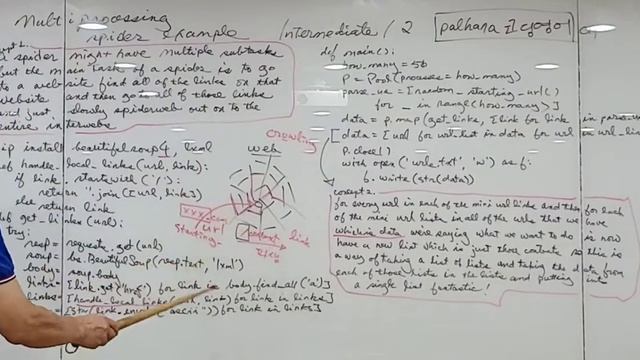 Multiprocessing
spider Example Intermediate / 2
might have multiple subtasks
main task of a spider is to go
to a web site find all of the links on that
website and then go to all of those links
and just slowly spiderweb out on to the
entire interwebs
pip install beautifulsoup4, lxml
def handle_local_links(url, link):
if link.startswith('/'):
return ''.join([url, link])
else return link
def get_links(url):
try:
resp = requests.get(url)
soup = bs.BeautifulSoup(resp.text, 'lxml')
body = soup.body
links = [link.get('href') for link in body.find_all('a')]
links = [handle_local_links(url, link) for link in links]
links = [str(link.encode("ascii")) for link in links]
web
crawling
xxx.com
url
starting
link
def main():
how_many = 50
p = Pool(processes = how_many)
parse_us = [random_starting_url()
for _ in range(how_many)]
data = p.map(get_links, [link for link in parse_us
data = [url for url_list in data for url in url_list
p.close()
with open('urls.txt', 'w') as f:
f.write(str(data))
concept 2.
for every url in each of the mini url links and then for each
of the mini url lists in all of the urls that we have
which is data were saying what we want to do is now
have a new list which is just those contents so this is
a way of taking a list of lists and taking the data from
each of those lists in the lists and putting into
a single list fantastic!